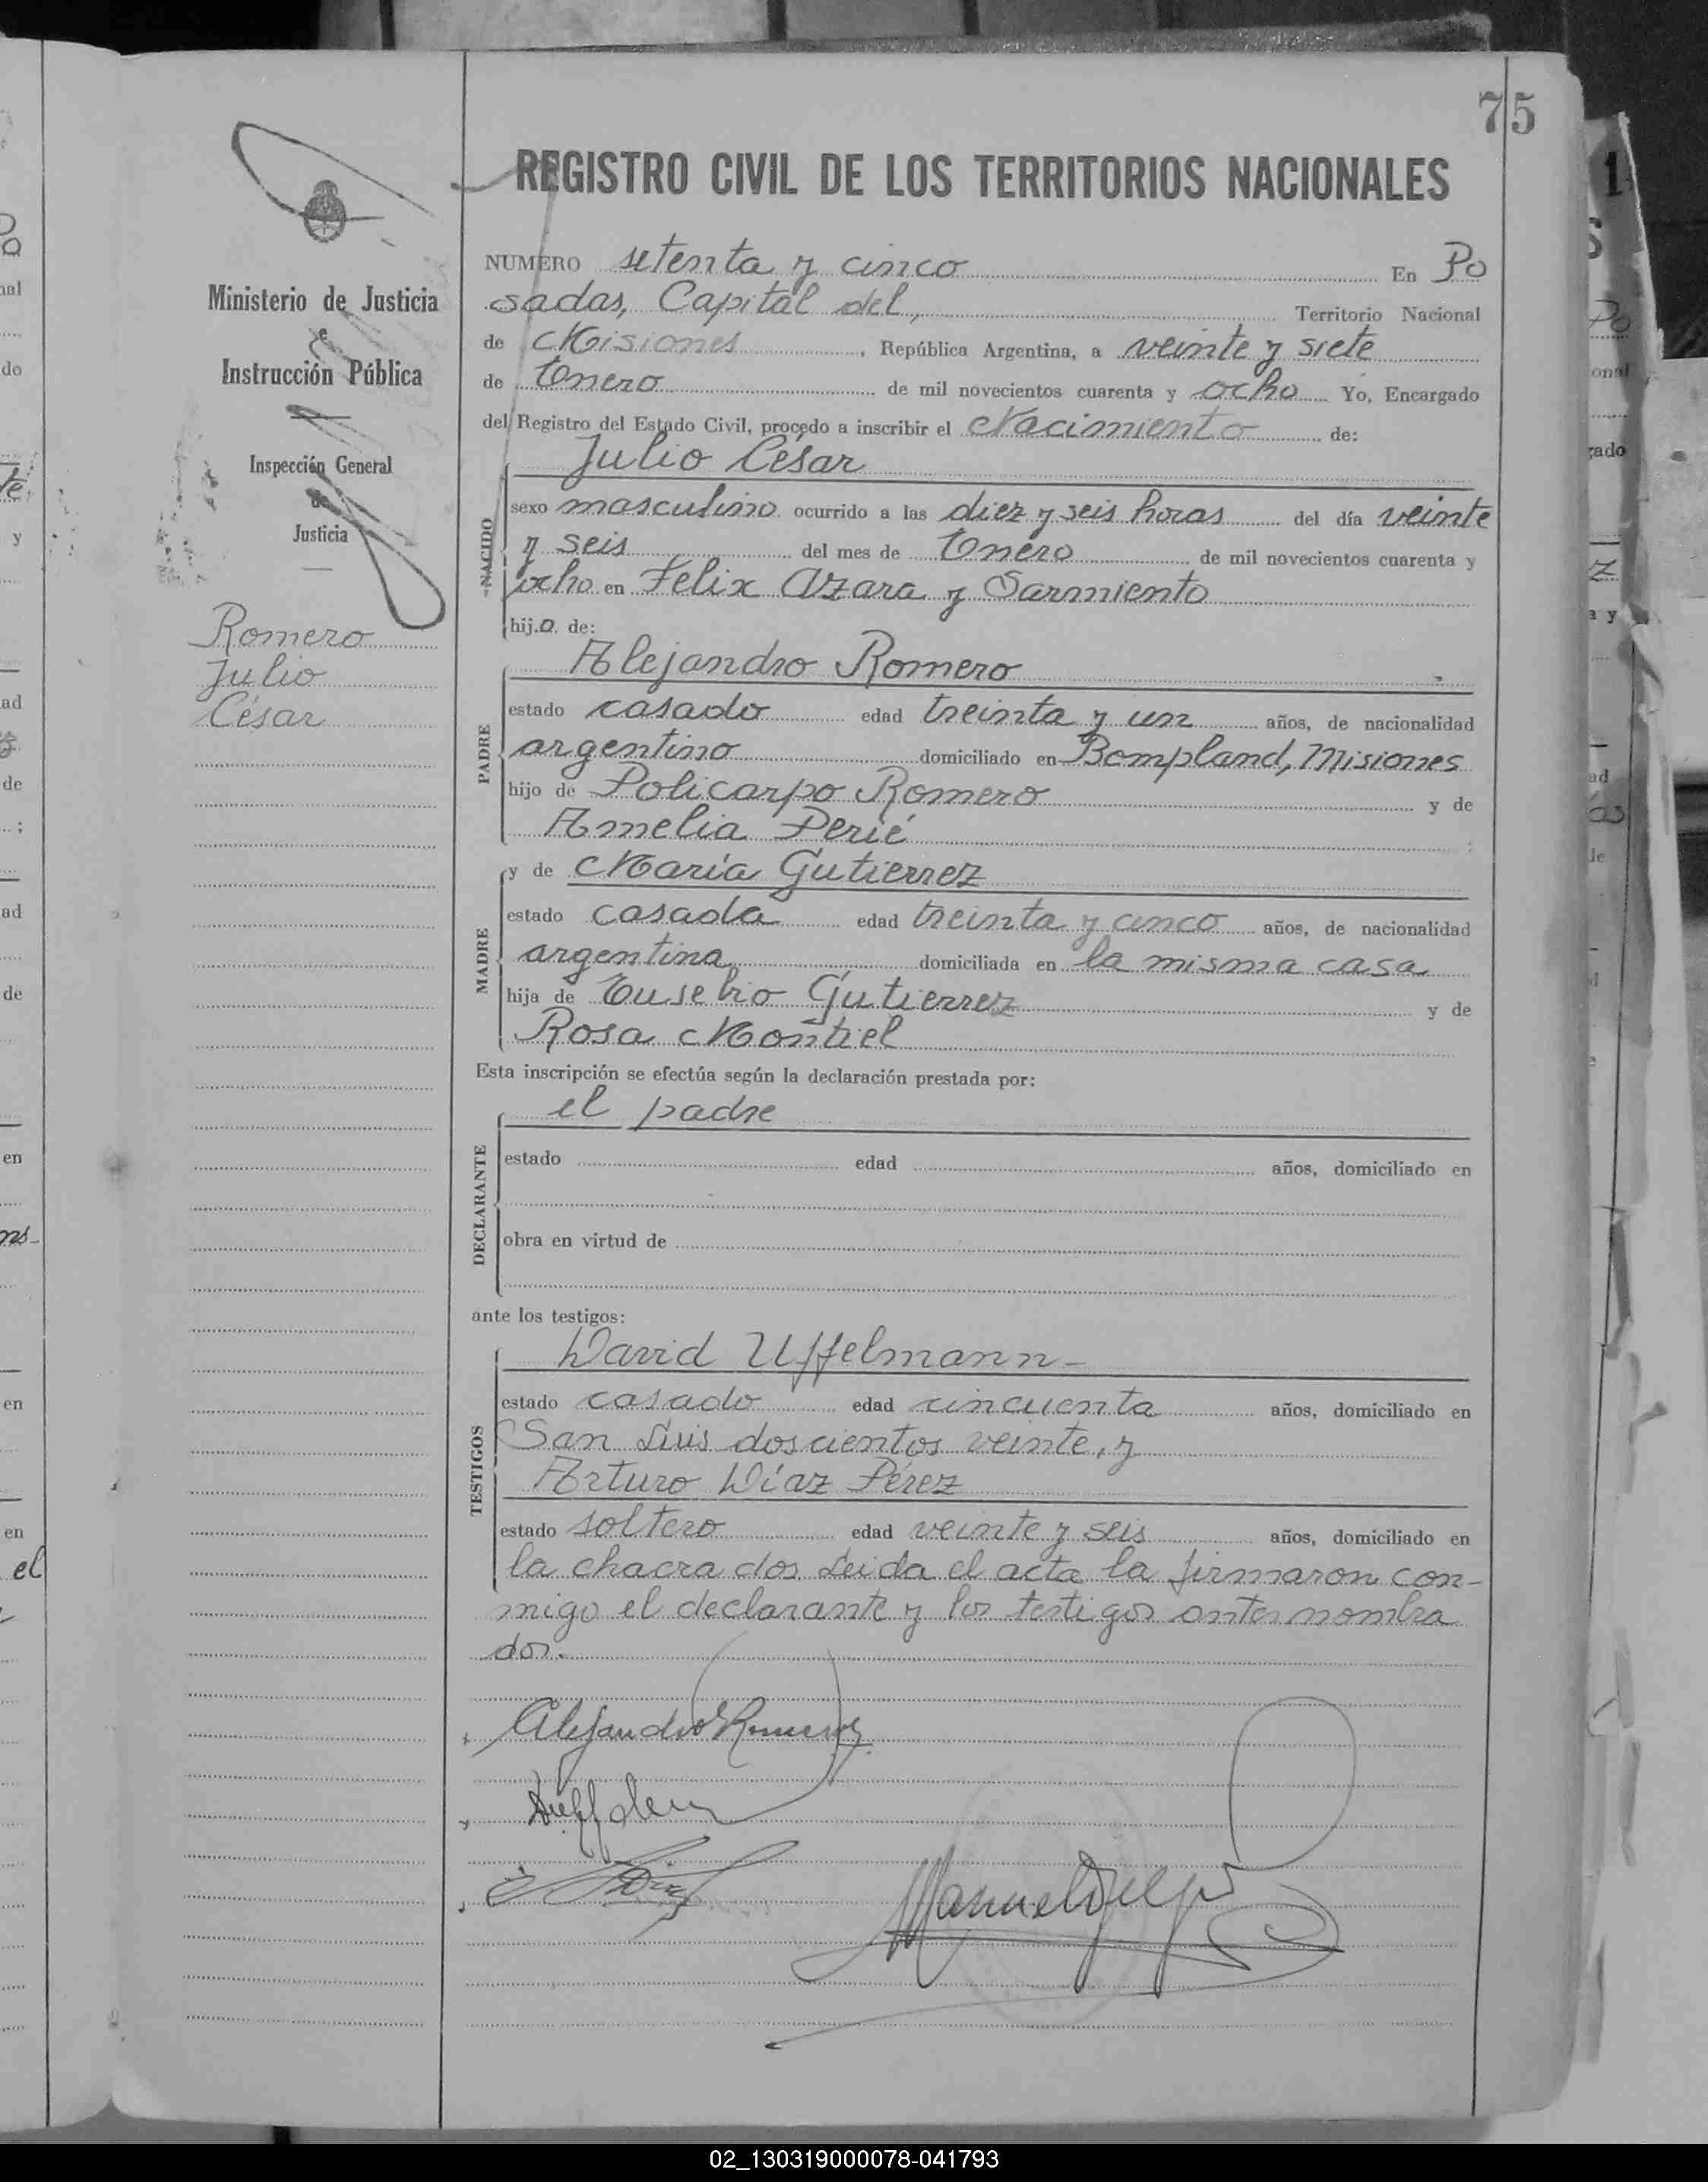 75
REGISTRO CIVIL DE LOS TERRITORIOS NACIONALES
Ministerio de Justicia
e
Instrucción Pública
Inspección General
de
Justicia
Romero
Julio
César
NUMERO setenta y cinco En Po
sadas, Capital del, Territorio Nacional
de Misiones, República Argentina, a veinte y siete
de Enero de mil novecientos cuarenta y ocho Yo, Encargado
del Registro del Estado Civil, procedo a inscribir el Nacimiento de:
Julio César
NACIDO
sexo masculino ocurrido a las diez y seis horas del día veinte
y seis del mes de Enero de mil novecientos cuarenta y
ocho en Felix Azara y Sarmiento
hijo de:
Alejandro Romero
PADRE
estado casado edad treinta y un años, de nacionalidad
argentino domiciliado en Bompland, Misiones
hijo de Policarpo Romero y de
Amelia Perié
y de María Gutierrez
MADRE
estado casada edad treinta y cinco años, de nacionalidad
argentina domiciliada en la misma casa
hija de Eusebio Gutierrez y de
Rosa Montiel
Esta inscripción se efectúa según la declaración prestada por:
el padre
DECLARANTE
estado edad años, domiciliado en
obra en virtud de
ante los testigos:
David Uffelmann-
TESTIGOS
estado casado edad cincuenta años, domiciliado en
San Luis doscientos veinte, y
Arturo Díaz Pérez
estado soltero edad veinte y seis años, domiciliado en
la chacra dos. Leida el acta la firmaron con-
migo el declarante y los testigos antes nombra
dos.
Alejandro Romero
02_130319000078-041793